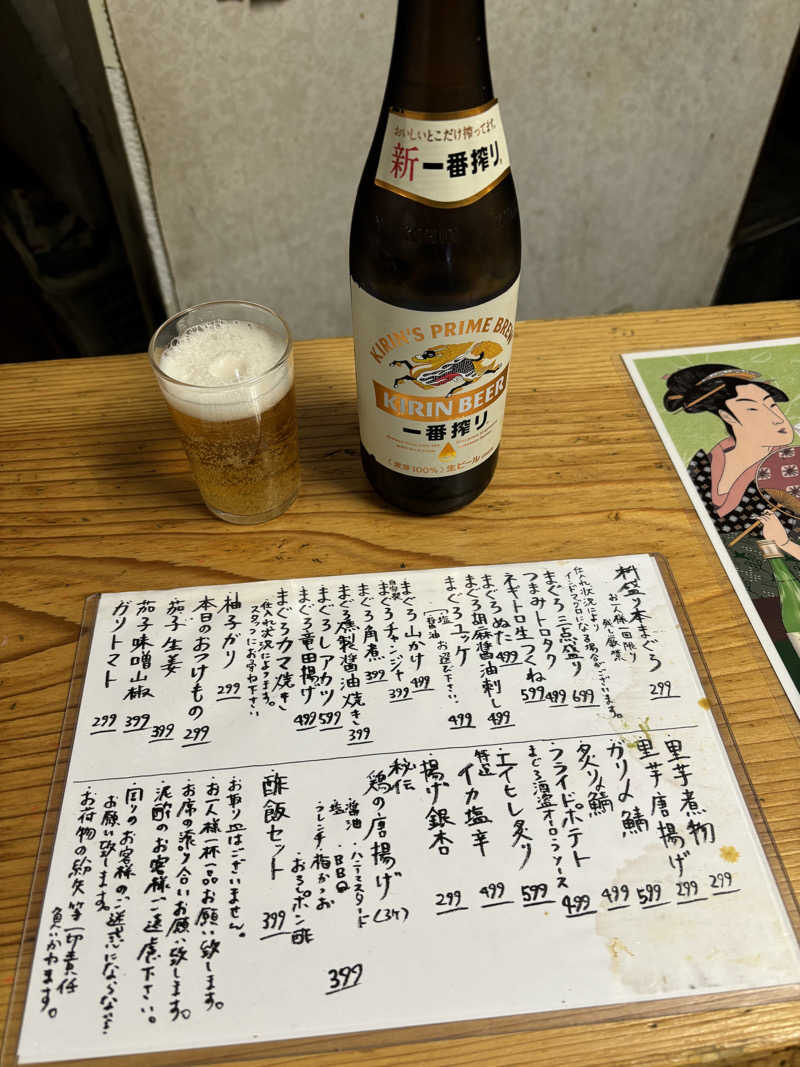 おいしいとこだけ搾ってます。
新一番搾り
KIRIN'S PRIME BREW
KIRIN BEER
一番搾り
〈麦芽100%〉生ビール
料盛り本まぐろ 299
お一人様一回限り
残し厳禁
仕入れ状況により
インドマグロになる場合がございます。
まぐろ三点盛り 699
つまみトロタク 499
ネギトロ生つくね 599
まぐろぬた 499
まぐろ胡麻醤油刺し 499
まぐろユッケ 499
「塩 醤油 お選び下さい。
まぐろ山かけ 499
自家製
まぐろチャンジャ 399
まぐろ角煮 399
まぐろ燻製醤油焼き 399
まぐろレアカツ 599
まぐろ竜田揚げ 499
まぐろカマ焼き
仕入れ状況によります。
スタッフにお尋ね下さい
柚子ガリ 299
本日のおつけもの 299
茄子生姜 399
茄子味噌山椒 399
ガリトマト 299
里芋煮物 299
里芋唐揚げ 299
ガリ〆鯖 599
炙り〆鯖 499
フライドポテト 499
まぐろ酒盗オーロラソース
エイヒレ炙り 599
特選
イカ塩辛 499
揚げ銀杏 299
秘伝
鶏の唐揚げ(3ケ) 399
・醤油 ・ハニーマスタード
・塩 ・BBQ
・フレンチ ・梅かつお
・おろしポン酢
酢飯セット 399
お取り皿はございません。
・お一人様一杯一品お願い致します。
・お席の譲り合いお願い致します。
・泥酔のお客様ご遠慮下さい。
・回りのお客様のご迷惑にならないよう
お願い致します。
・お荷物の紛失等一切責任
負いかねます。